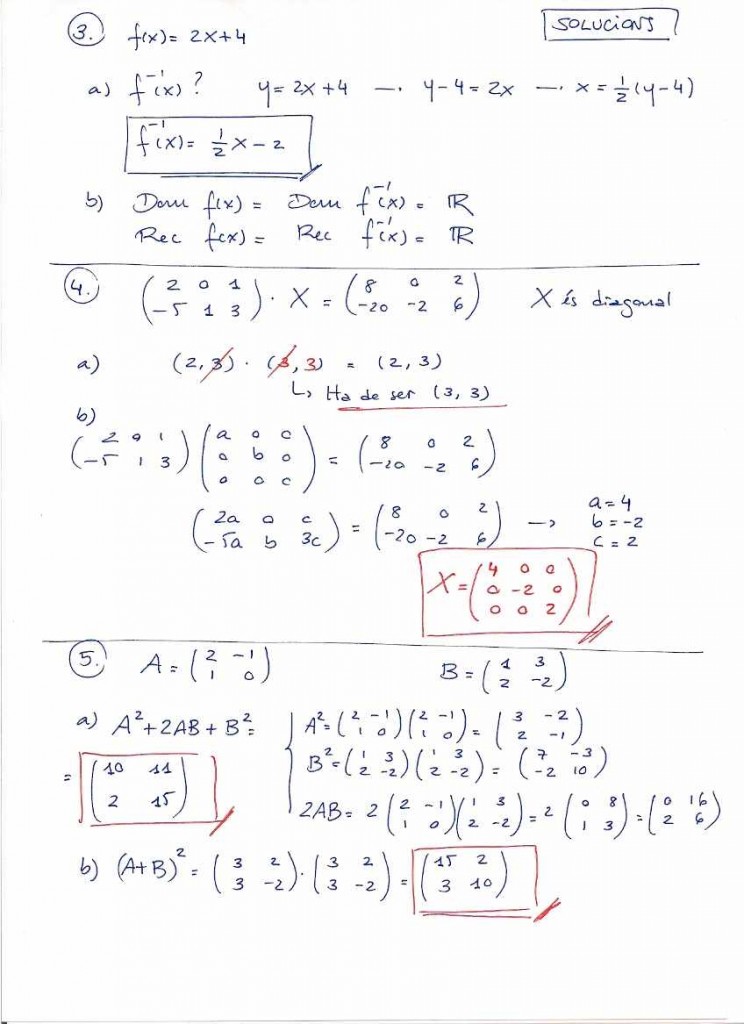 SOLUCIONS
3. f(x) = 2x+4
a) f⁻¹(x)? y = 2x+4 —. y-4 = 2x —. x = ½(y-4)
f⁻¹(x) = ½x - 2
b) Dom f(x) = Dom f⁻¹(x) = ℝ
Rec f(x) = Rec f⁻¹(x) = ℝ
4. (2 0 1 / -5 1 3) · X = (8 0 2 / -20 -2 6) X és diagonal
a) (2, 3) · (3, 3) = (2, 3)
↳ Ha de ser (3, 3)
b)
(2 0 1 / -5 1 3) (a 0 c / 0 b 0 / 0 0 c) = (8 0 2 / -20 -2 6)
(2a 0 c / -5a b 3c) = (8 0 2 / -20 -2 6) → a = 4
b = -2
c = 2
X = (4 0 0 / 0 -2 0 / 0 0 2)
5. A = (2 -1 / 1 0) B = (1 3 / 2 -2)
a) A² + 2AB + B² =
= (10 11 / 2 15)
A² = (2 -1 / 1 0) (2 -1 / 1 0) = (3 -2 / 2 -1)
B² = (1 3 / 2 -2) (1 3 / 2 -2) = (7 -3 / -2 10)
2AB = 2 (2 -1 / 1 0) (1 3 / 2 -2) = 2 (0 8 / 1 3) = (0 16 / 2 6)
b) (A+B)² = (3 2 / 3 -2) · (3 2 / 3 -2) = (15 2 / 3 10)